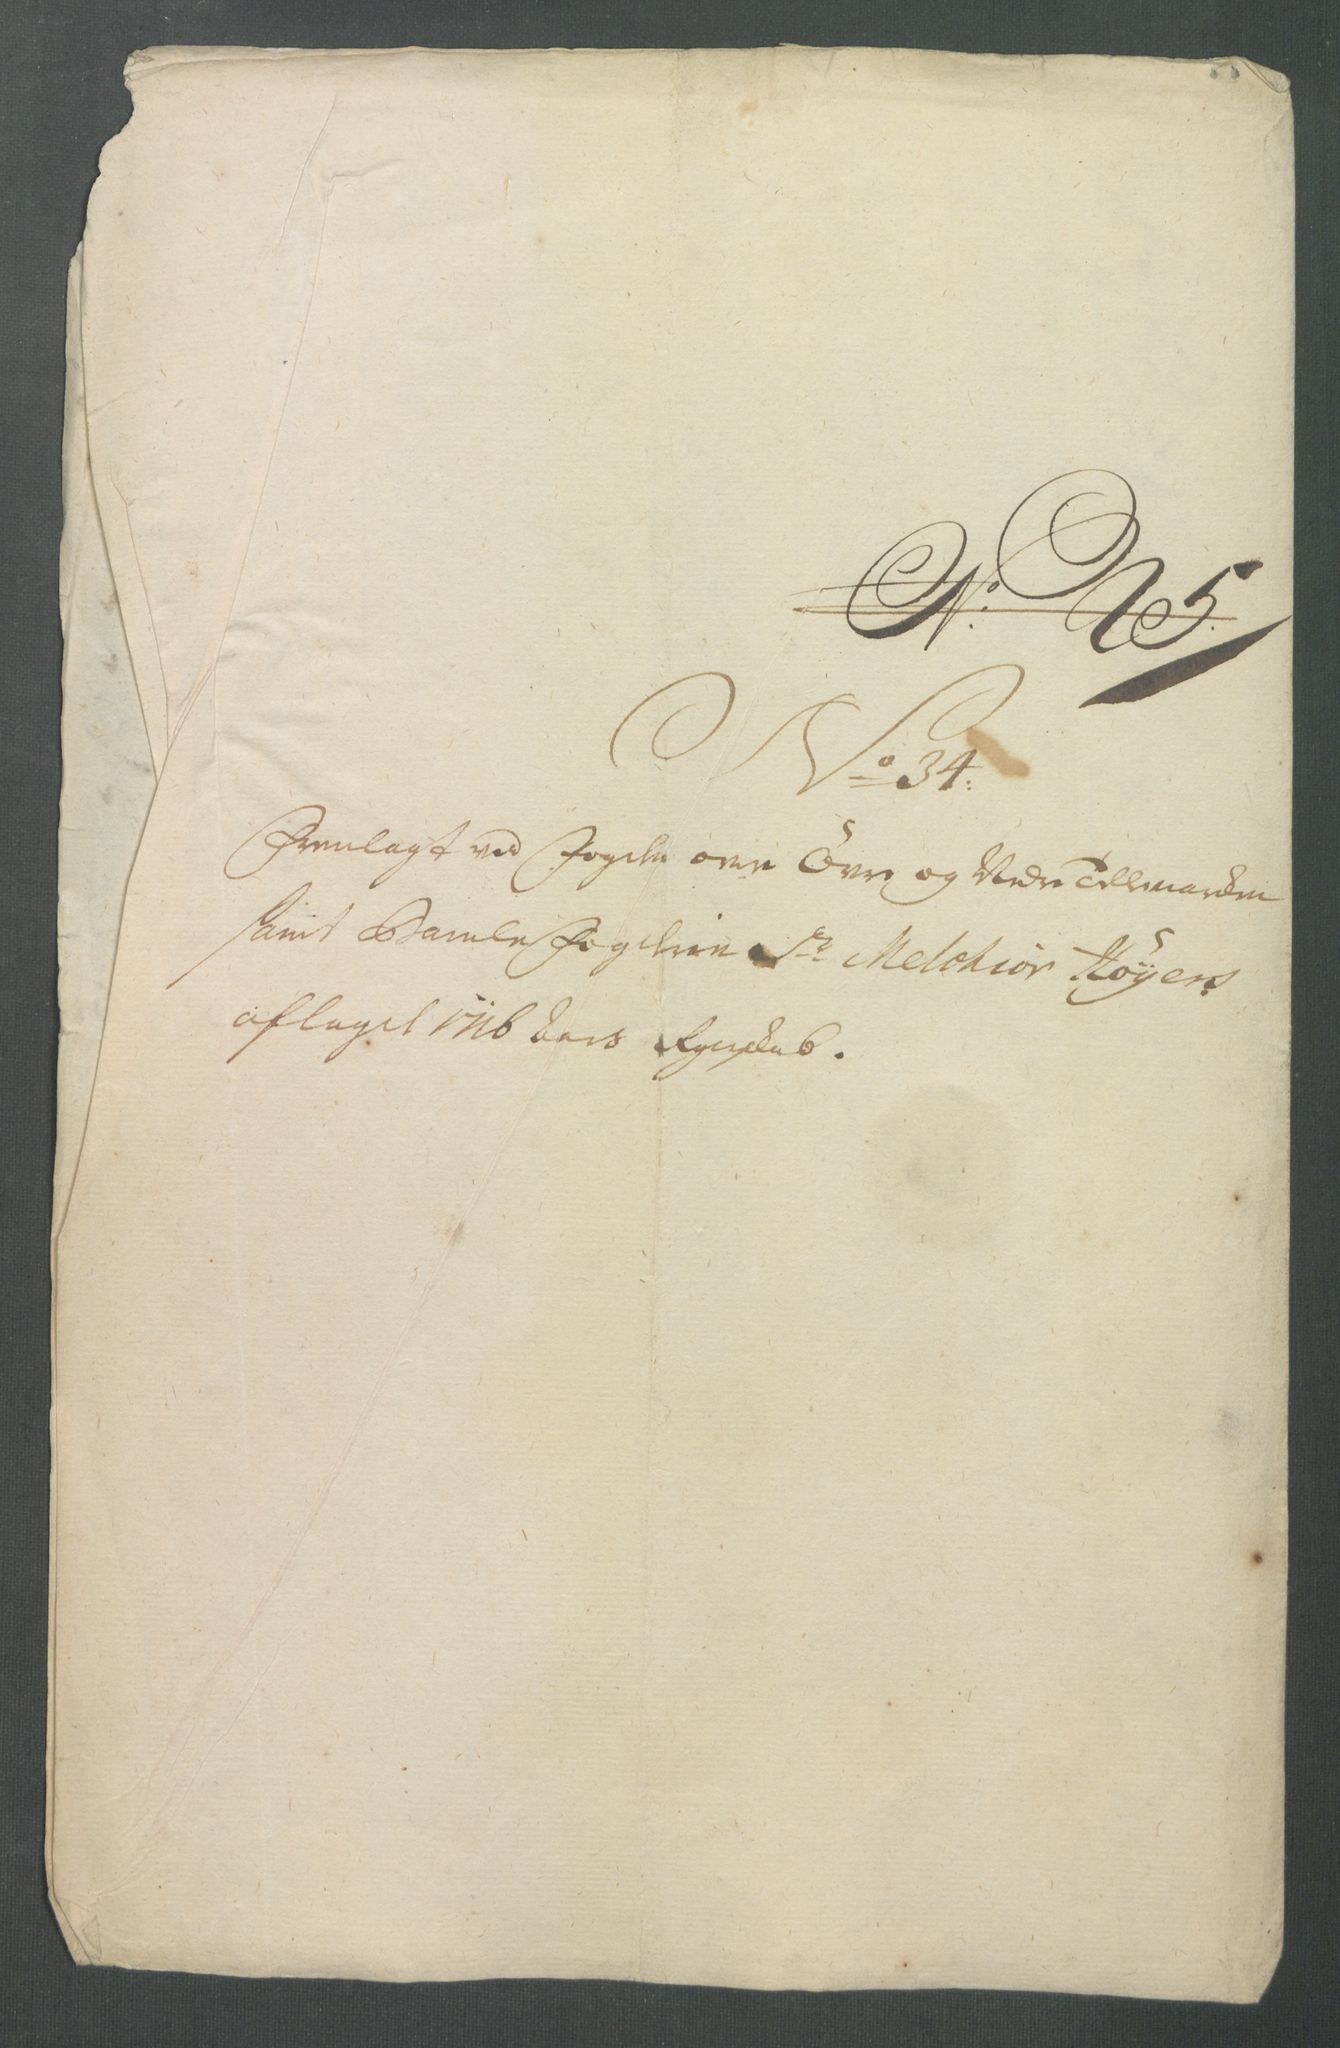 N:o N 5.
No 34:
Fremlagt ved Fogden over Övre og Nedre Tellemarcken
samt Bamble Fogderie Sr Melchior Höyers
aflagde 1716 Aars Regnskab.